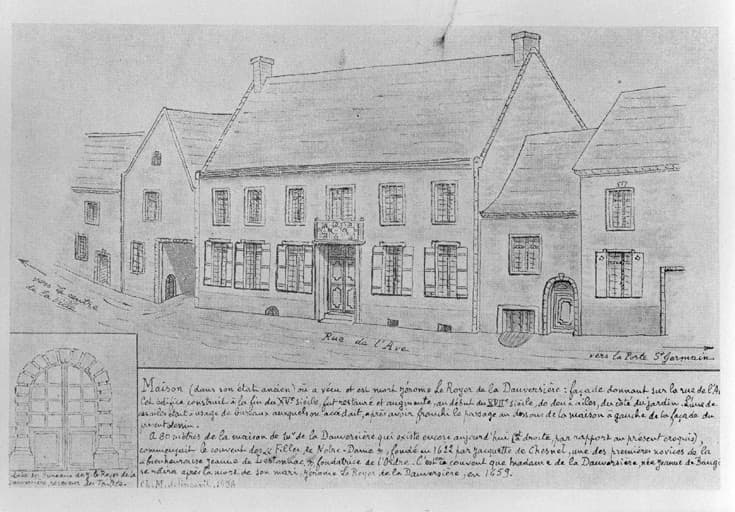 vers le centre
de la Ville
Rue de l'Ave
vers la Porte St Germain
Maison (dans son état ancien) où a vécu et est mort Jérôme Le Royer de la Dauversière : façade donnant sur la rue de l'A
Cet édifice construit à la fin du XVe siècle, fut restauré et augmenté, au début du XVIIe siècle, de deux ailes, du côté du jardin. L'une de
ses ailes était à usage de bureaux auxquels on accédait, après avoir franchi le passage au dessous de la maison à gauche de la façade du
présent dessin.
A 80 mètres de la maison de Mr de la Dauversière qui existe encore aujourd'hui (à droite, par rapport au présent croquis),
commençait le couvent des "Filles de Notre-Dame", fondé en 1622 par Jacquette de Chesnel, une des premières novices de la
bienheureuse Jeanne de Lestonnac, fondatrice de l'Ordre. C'est à ce couvent que madame de la Dauversière née Jeanne de Baugé
se retira après la mort de son mari, Jérôme Le Royer de la Dauversière, en 1659.
des Bureaux de J. le Royer de la
Dauversière, receveur des Tailles.
1934